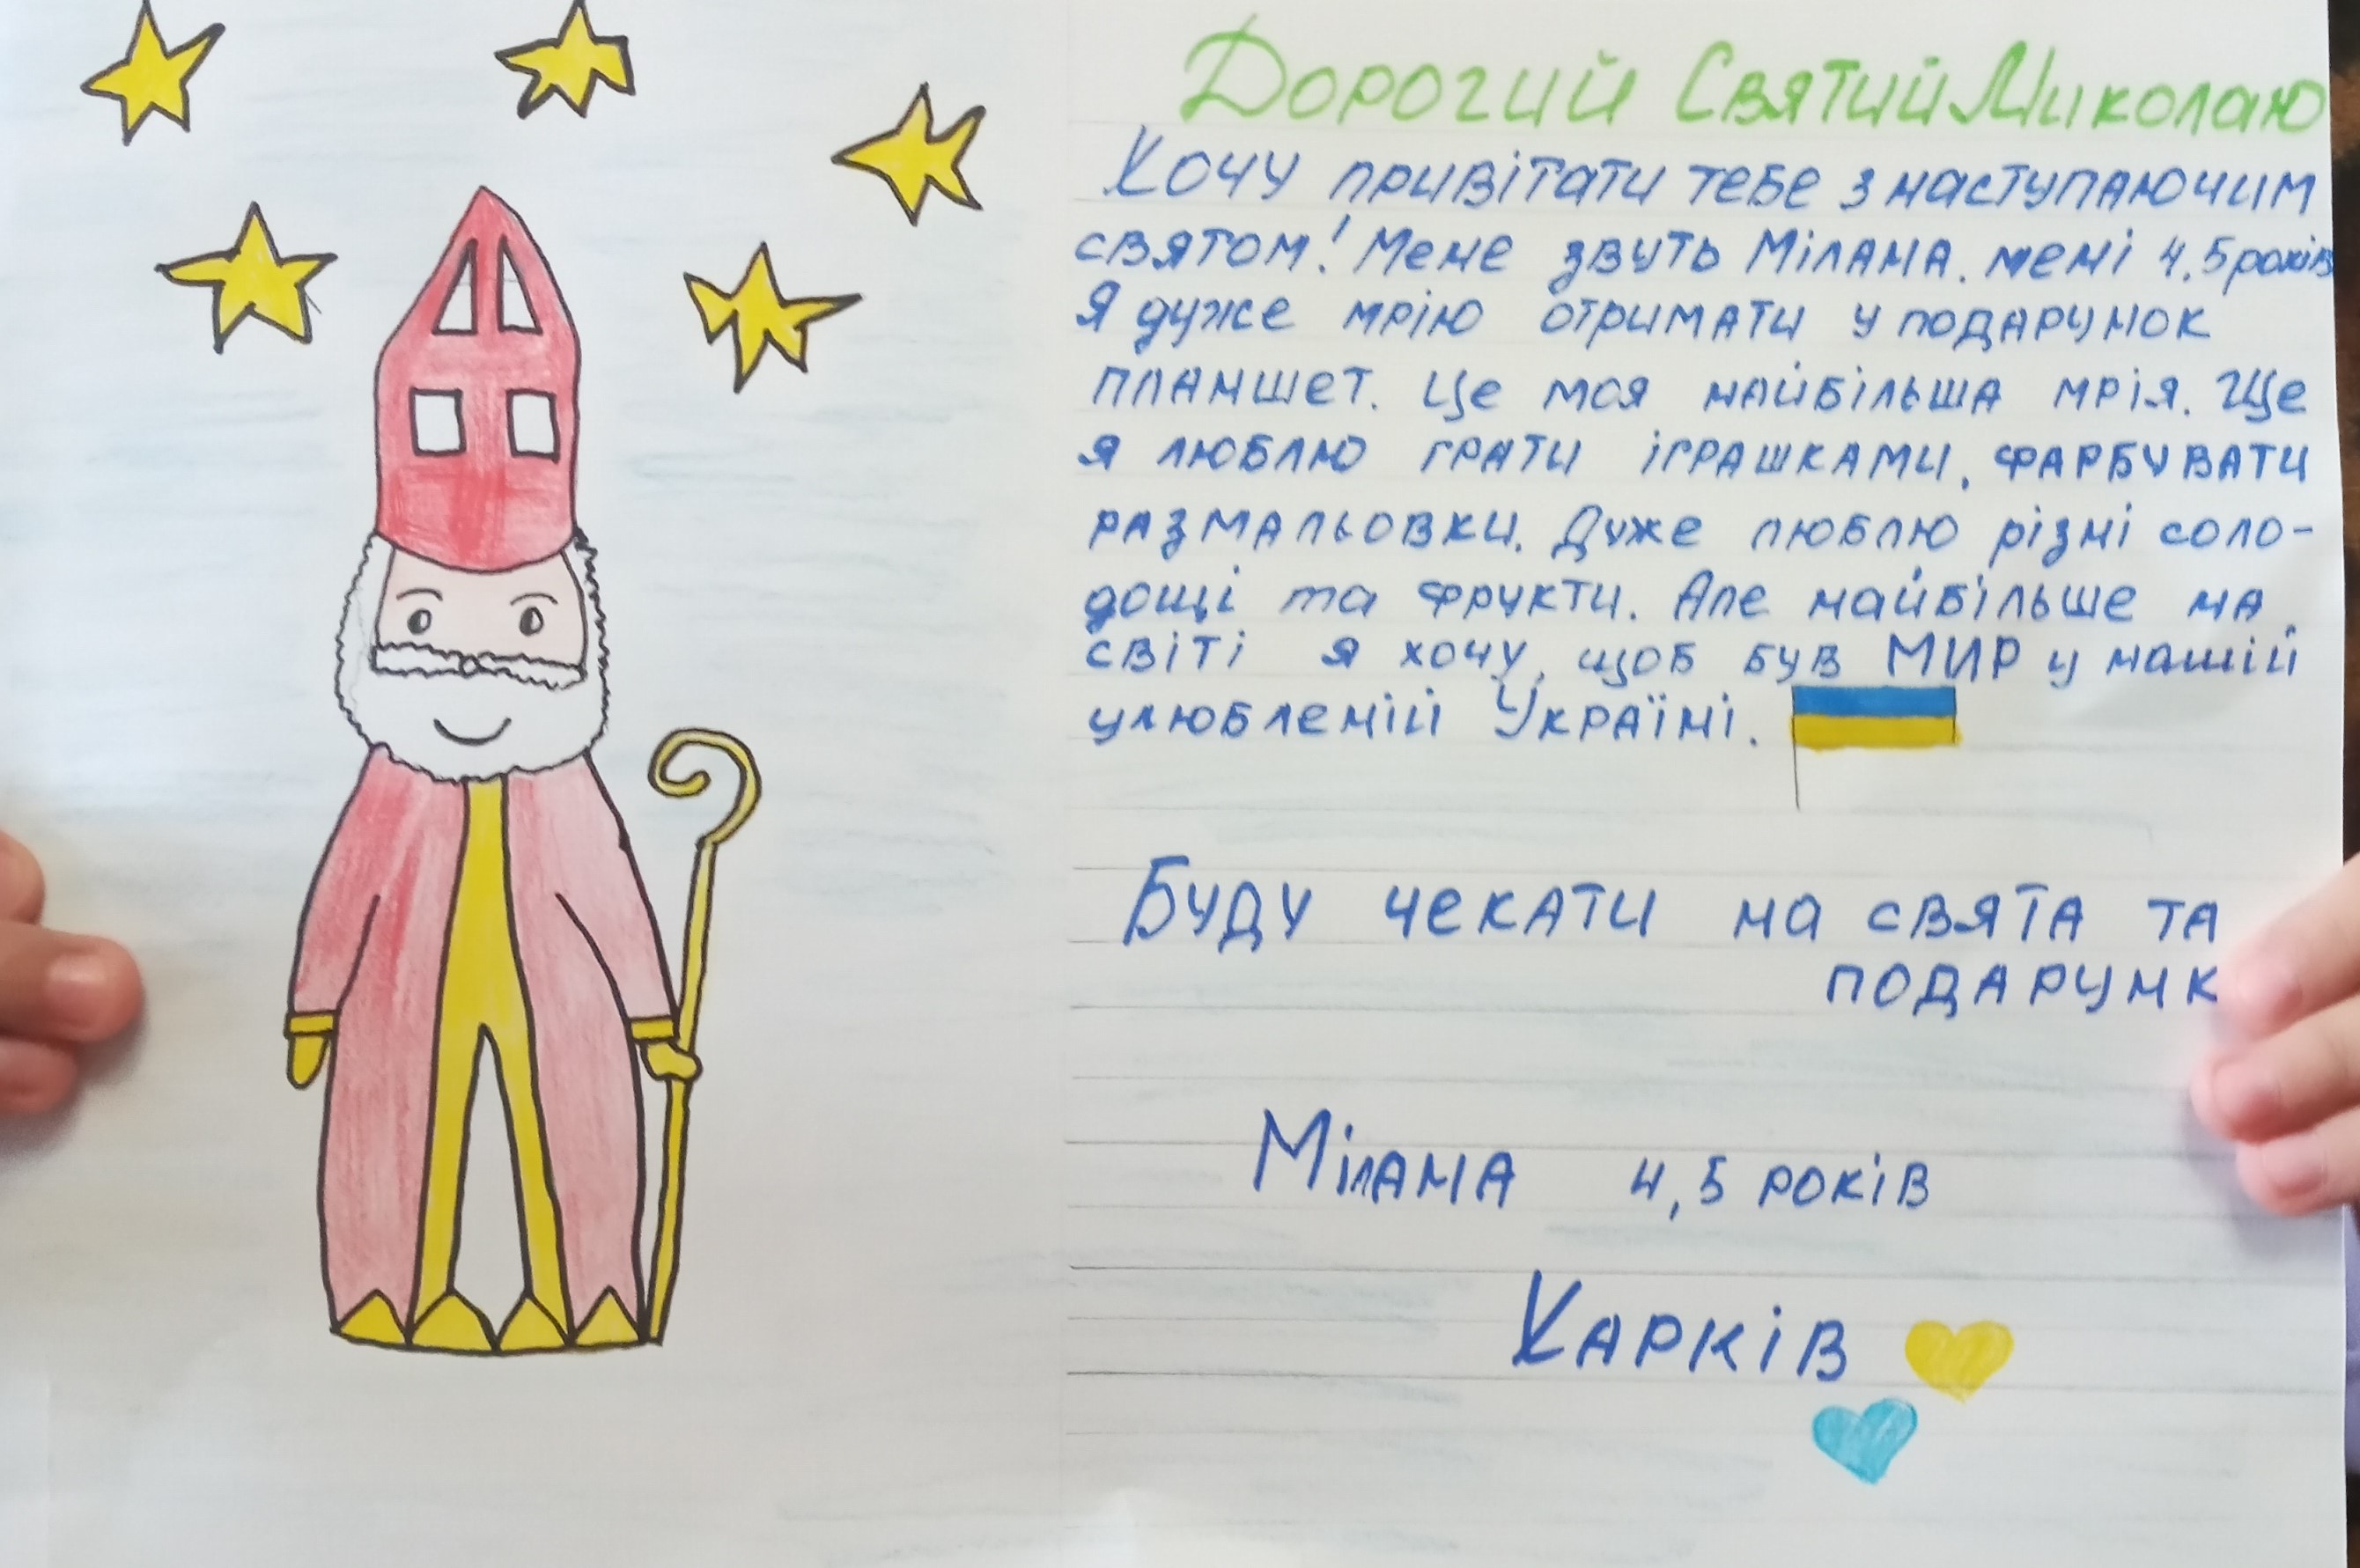 Дорогий Святий Миколаю
Хочу привітати тебе з наступаючим
святом! Мене звуть Мілана. мені 4,5 років
Я дуже мрію отримати у подарунок
планшет. Це моя найбільша мрія. Ще
я люблю грати іграшками, фарбувати
размальовки. Дуже люблю різні соло-
дощі та фрукти. Але найбільше на
світі я хочу, щоб був МИР у нашій
улюбленій Україні.
Буду чекати на свята та
подарунк
Мілана 4,5 років
Харків